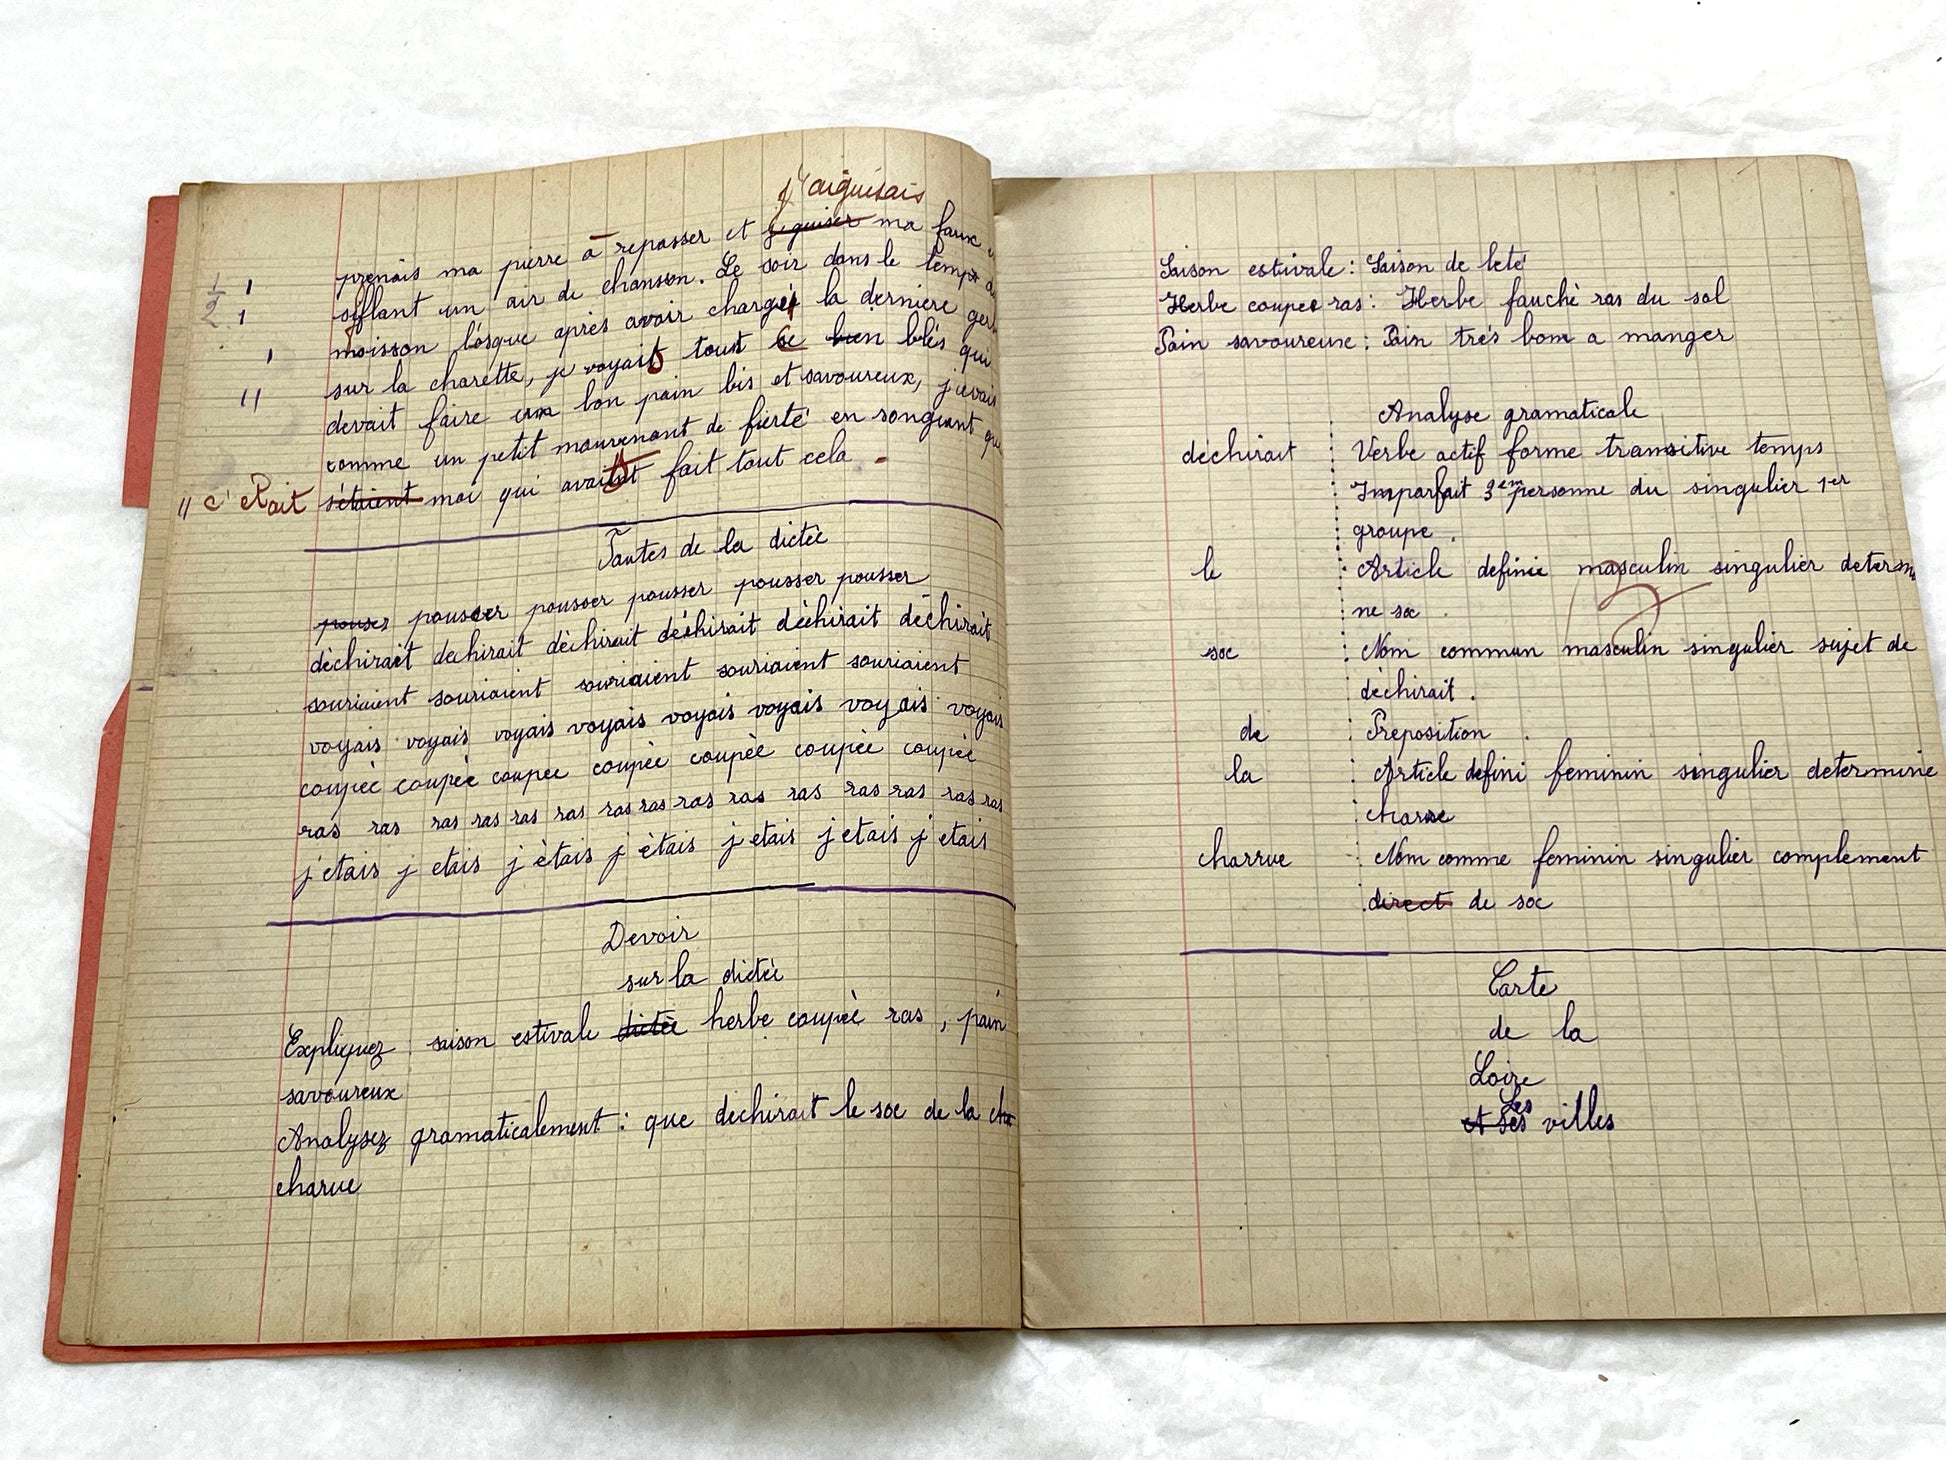 j'aiguisais
prenais ma pierre à repasser et j'eguiser ma faux
siflant un air de chanson. Le soir dans le temps de
moisson lorsque après avoir chargé la derniere gerb
sur la charette, je voyais tout ce bien blés qui
devait faire un bon pain bis et savoureux, j'ievais
comme un petit mouvenant de fierté en songeant que
11 c'etait s'étaient moi qui avait fait tout cela.
Fautes de la dictèe
pouser pousser pousser pousser pousser
dèchirait dechirait dèchirait dèchirait dèchirait dèchirait
souriaient souriaient souriaient souriaient souriaient
voyais voyais voyais voyais voyais voyais voyais
coupèe coupèe coupee coupèe coupèe coupèe coupèe
ras ras ras ras ras ras ras ras ras ras ras ras ras ras ras
j'etais j etais j ètais j ètais j etais j etais j'etais
Devoir
sur la dictèe
Expliquez saison estivale dictèe herbe coupèe ras, pain
savoureux
Analysez gramaticalement : que dechirait le soc de la cha
charue
Saison estivale : Saison de leté
Herbe coupee ras : Herbe fauchè ras du sol
Pain savoureuse : Pain trés bom a manger
Analyse gramaticale
dèchirait : Verbe actif forme transitive temps
Imparfait 3em personne du singulier 1er
groupe.
le : Article definie masculin singulier determi
ne soc.
soc : Nom commun masculin singulier sujet de
dèchirait.
de : Preposition.
la : Article defini feminin singulier determine
charue
charrue : Nom comme feminin singulier complement
direct de soc
Carte
de la
Loire
Les
et Ses villes